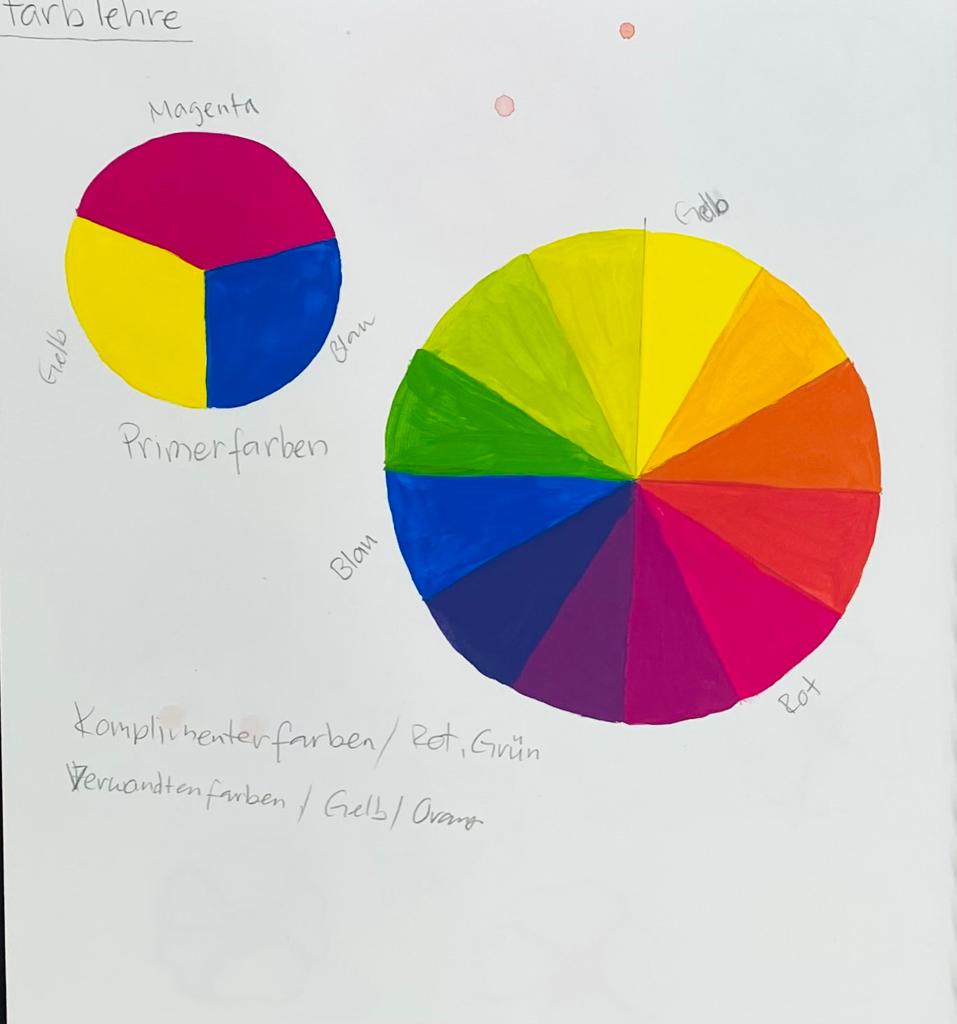 farblehre
Magenta
Gelb
Blau
Primerfarben
Gelb
Blau
Rot
Komplimenterfarben/ Rot, Grün
Verwandtenfarben / Gelb/ Orang